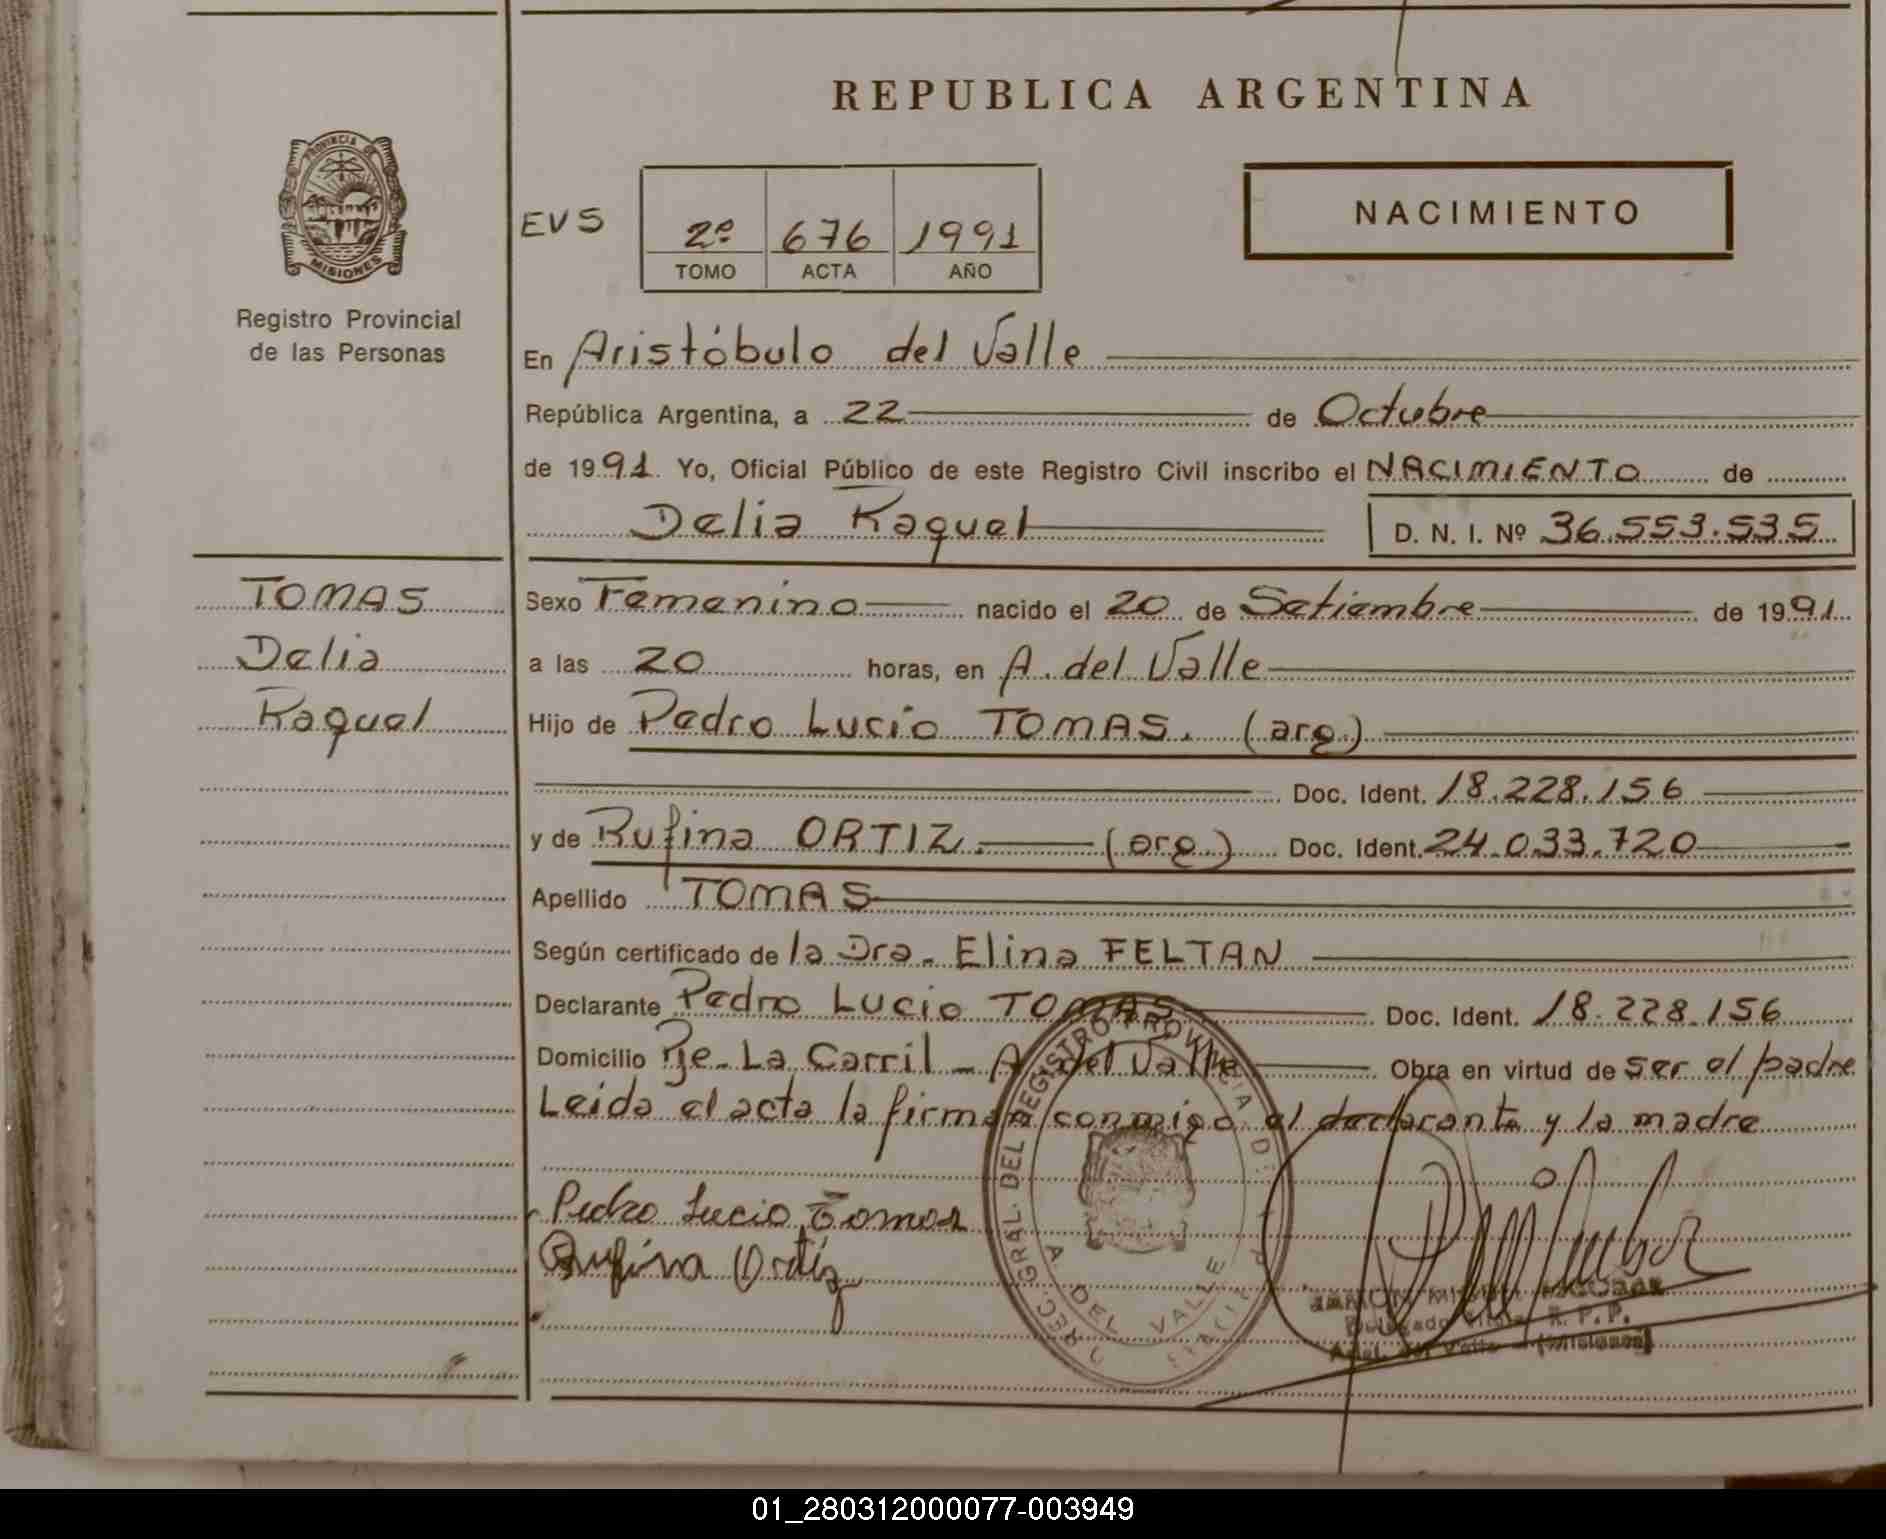 REPUBLICA ARGENTINA
PROVINCIA DE
MISIONES
Registro Provincial
de las Personas
EVS
2º 676 1991
TOMO ACTA AÑO
NACIMIENTO
En Aristóbulo del Valle
República Argentina, a 22 de Octubre
de 1991. Yo, Oficial Público de este Registro Civil inscribo el NACIMIENTO de
Delia Raquel D. N. I. Nº 36.553.535
TOMAS
Delia
Raquel
Sexo Femenino nacido el 20 de Setiembre de 1991
a las 20 horas, en A. del Valle
Hijo de Pedro Lucio TOMAS. (arg.)
Doc. Ident. 18.228.156
y de Rufina ORTIZ. (arg.) Doc. Ident. 24.033.720
Apellido TOMAS
Según certificado de la Dra. Elina FELTAN
Declarante Pedro Lucio TOMAS Doc. Ident. 18.228.156
Domicilio Pje. La Carril - A. del Valle Obra en virtud de ser el padre
Leida el acta la firman conmigo el declarante y la madre
Pedro Lucio Tomas
Rufina Ortiz
REC. GRAL. DEL REGISTRO PROVINCIAL DE
A DEL VALLE
R. P. P.
(Misiones)
01_280312000077-003949